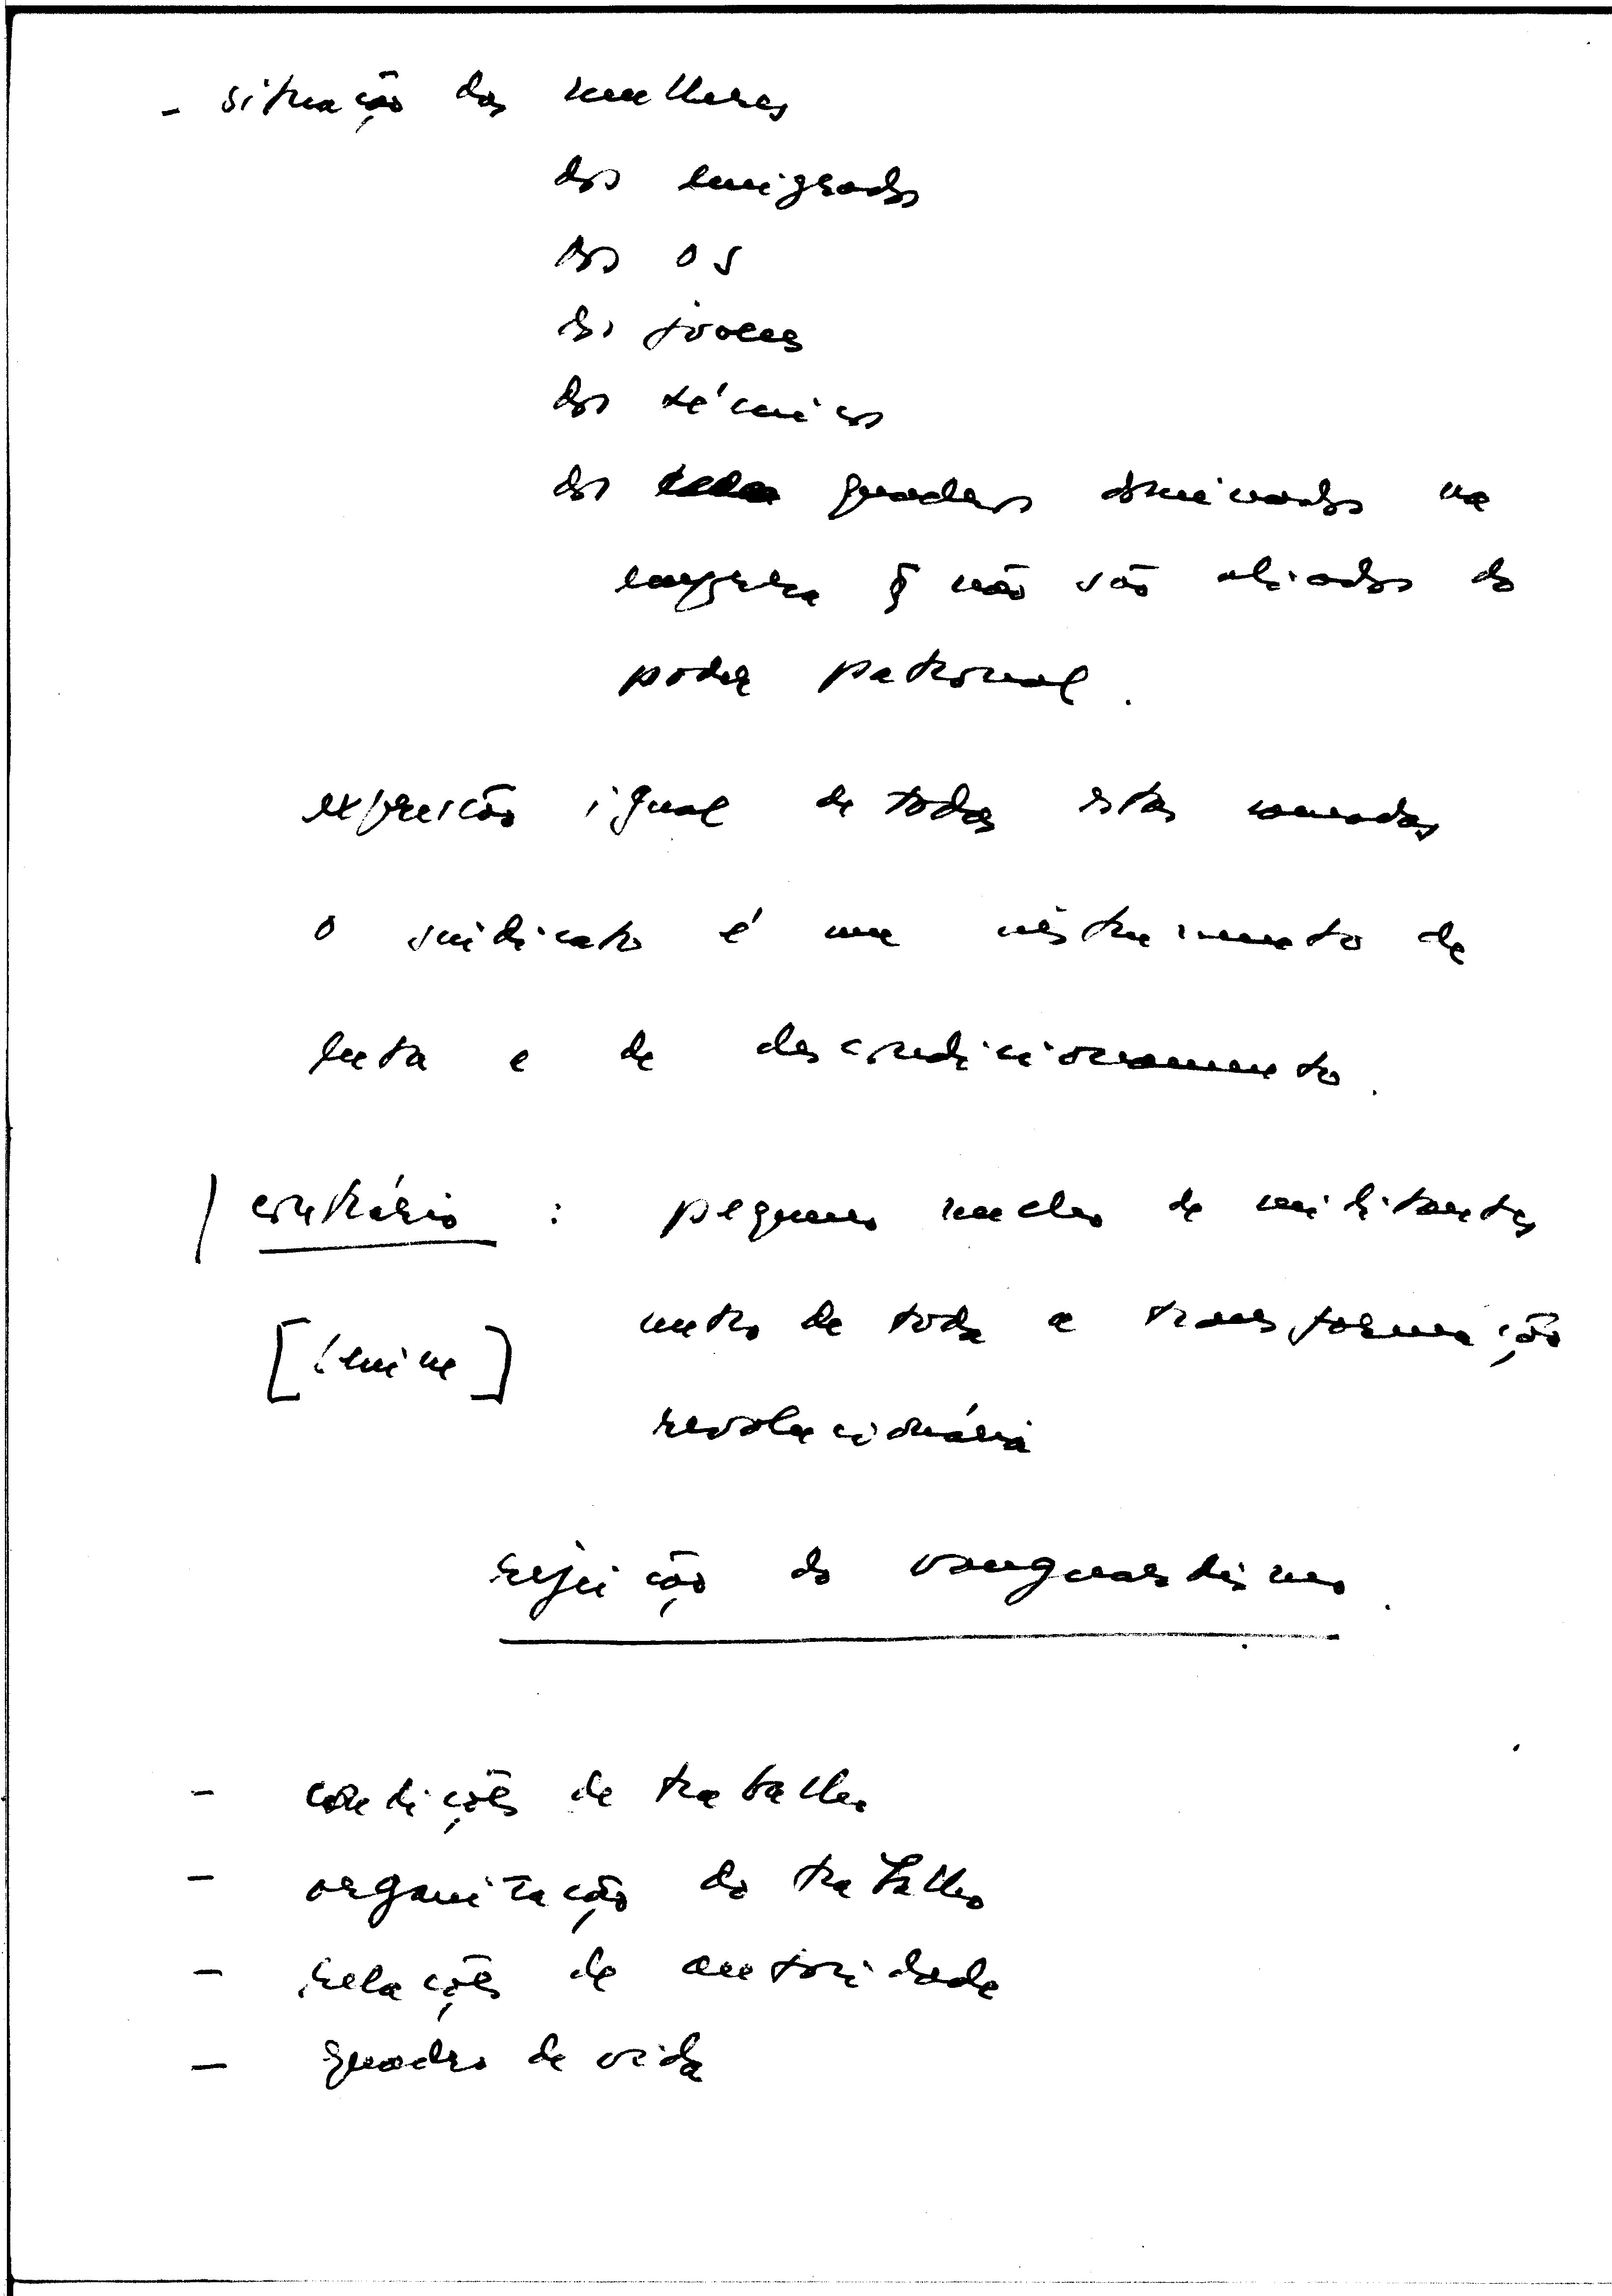 - situação das mulheres
dos emigrados
dos OS
dos jovens
dos técnicos
dos quadros dominados na
empresa q̃ não são aliados do
poder patronal.
expressão igual de todas estas camadas
o sindicato é um instrumento de
luta e de descondicionamento.
/ contrário : pequeno núcleo de militantes
[Lenine] motor de toda a transformação
revolucionária
rejeição do vanguardismo.
- condições de trabalho
- organização do trabalho
- relações de autoridade
- quadro de vida